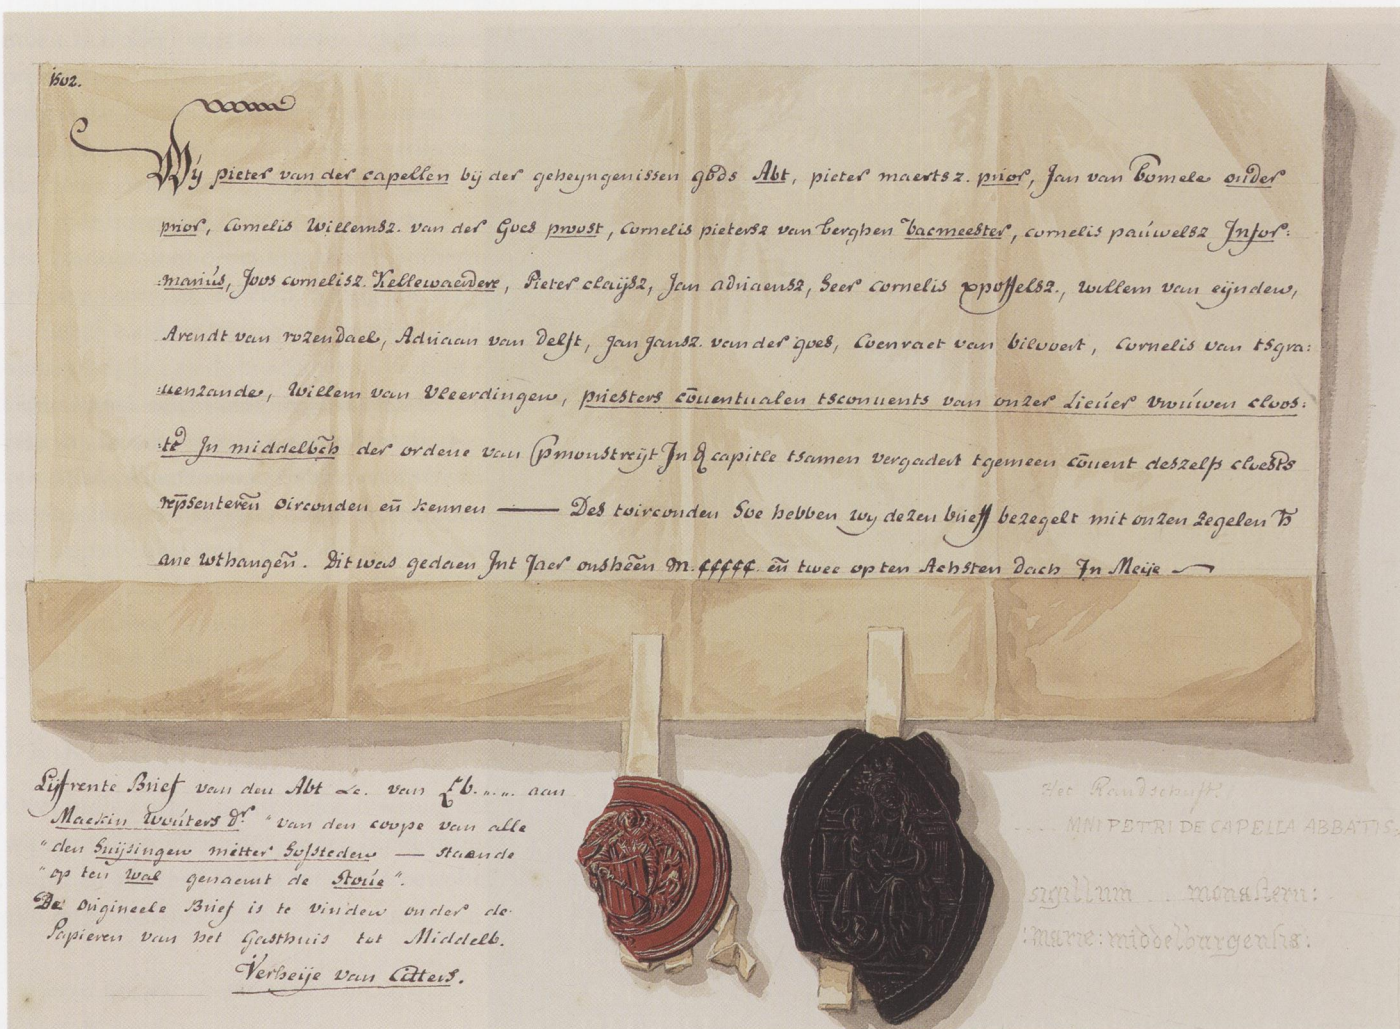 1502.
Wij pieter van der capellen bij der geheyngenissen gods Abt, pieter maertsz. prior, Jan van bomele onder
prior, Cornelis Willemsz. van der Goes proost, Cornelis pietersz van berghen bacmeester, cornelis paúwelsz Infor:
:mariús, Joos cornelisz. Kellewaerdere, Pieter claijsz, Jan adriaensz, heer cornelis xpoffelsz., willem van eijnden,
Arendt van rozendael, Adriaan van Delft, Jan Jansz. van der goes, Coenraet van bilvoert, Cornelis van tsgra:
:uenzande, Willem van Vleerdingen, priesters cōuentualen tsconuents van onzer Lieúer vrouwen cloos:
:te In middelbch der ordene van Pmonstreyt In capitle tsamen vergadert tgemeen cōuent deszelfs cloesters
rep̄senteren̄ oirconden en̄ kennen —— Des toirconden Soe hebben wy dezen brieff bezegelt mit onzen zegelen
ane wthangen̄. Dit was gedaen Int Jaer onsheēn M.CCCCC en̄ twee op ten Achsten dach In Meije
Lijfrente Brief van den Abt &c. van Lb. „. „. aan
Maekin Woúters Dr. "van den coope van alle
"den huijsingen metter hofsteden — staende
"op ten wal genaemt de Stoúe".
De origineele Brief is te vinden onder de
Papieren van het Gasthuis tot Middelb.
Verheije van Citters.
Het Randschrift:
.... MNI PETRI DE CAPELLA ABBATIS
sigillum .. monastern:
:marie: middelburgensis: